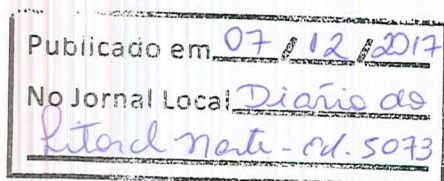 Publicado em 07/12/2017
No Jornal Local Diário do
Litoral Norte - Ed. 5073